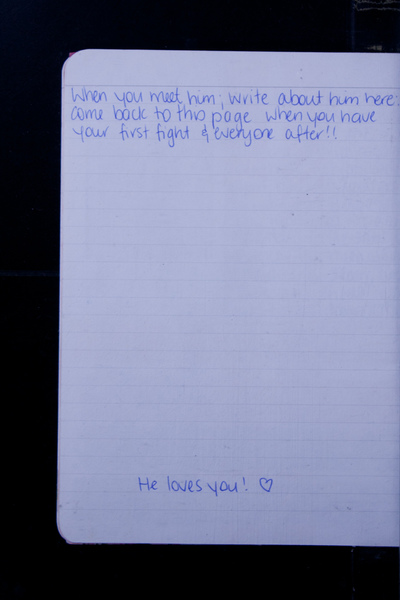 When you meet him; write about him here:
come back to this page when you have
your first fight & everyone after!!
He loves you! ♡